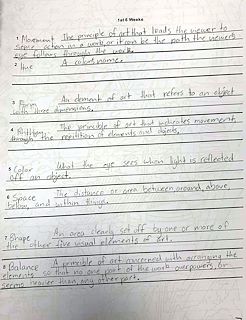 1st 6 Weeks
1 Movement The principle of art that leads the viewer to
sense action in a work, or it can be the path the viewer's
eye follows through the work.
2 Hue A colors name.
3 Form An element of art that refers to an object
with three dimensions.
4 Rhythm The principle of art that indicates movement
through the repetition of elements and objects.
5 Color What the eye sees when light is reflected
off an object.
6 Space The distance or area between, around, above,
below, and within things.
7 Shape An area clearly set off by one or more of
the other five visual elements of art.
8 Balance A principle of art concerned with arranging the
elements so that no one part of the work overpowers, or
seems heavier than, any other part.